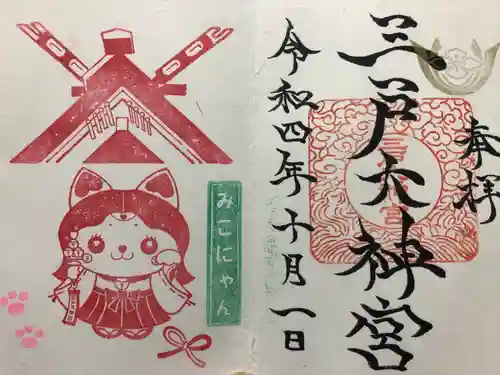 奉拝
三戸大神宮
令和四年十月一日
みこにゃん